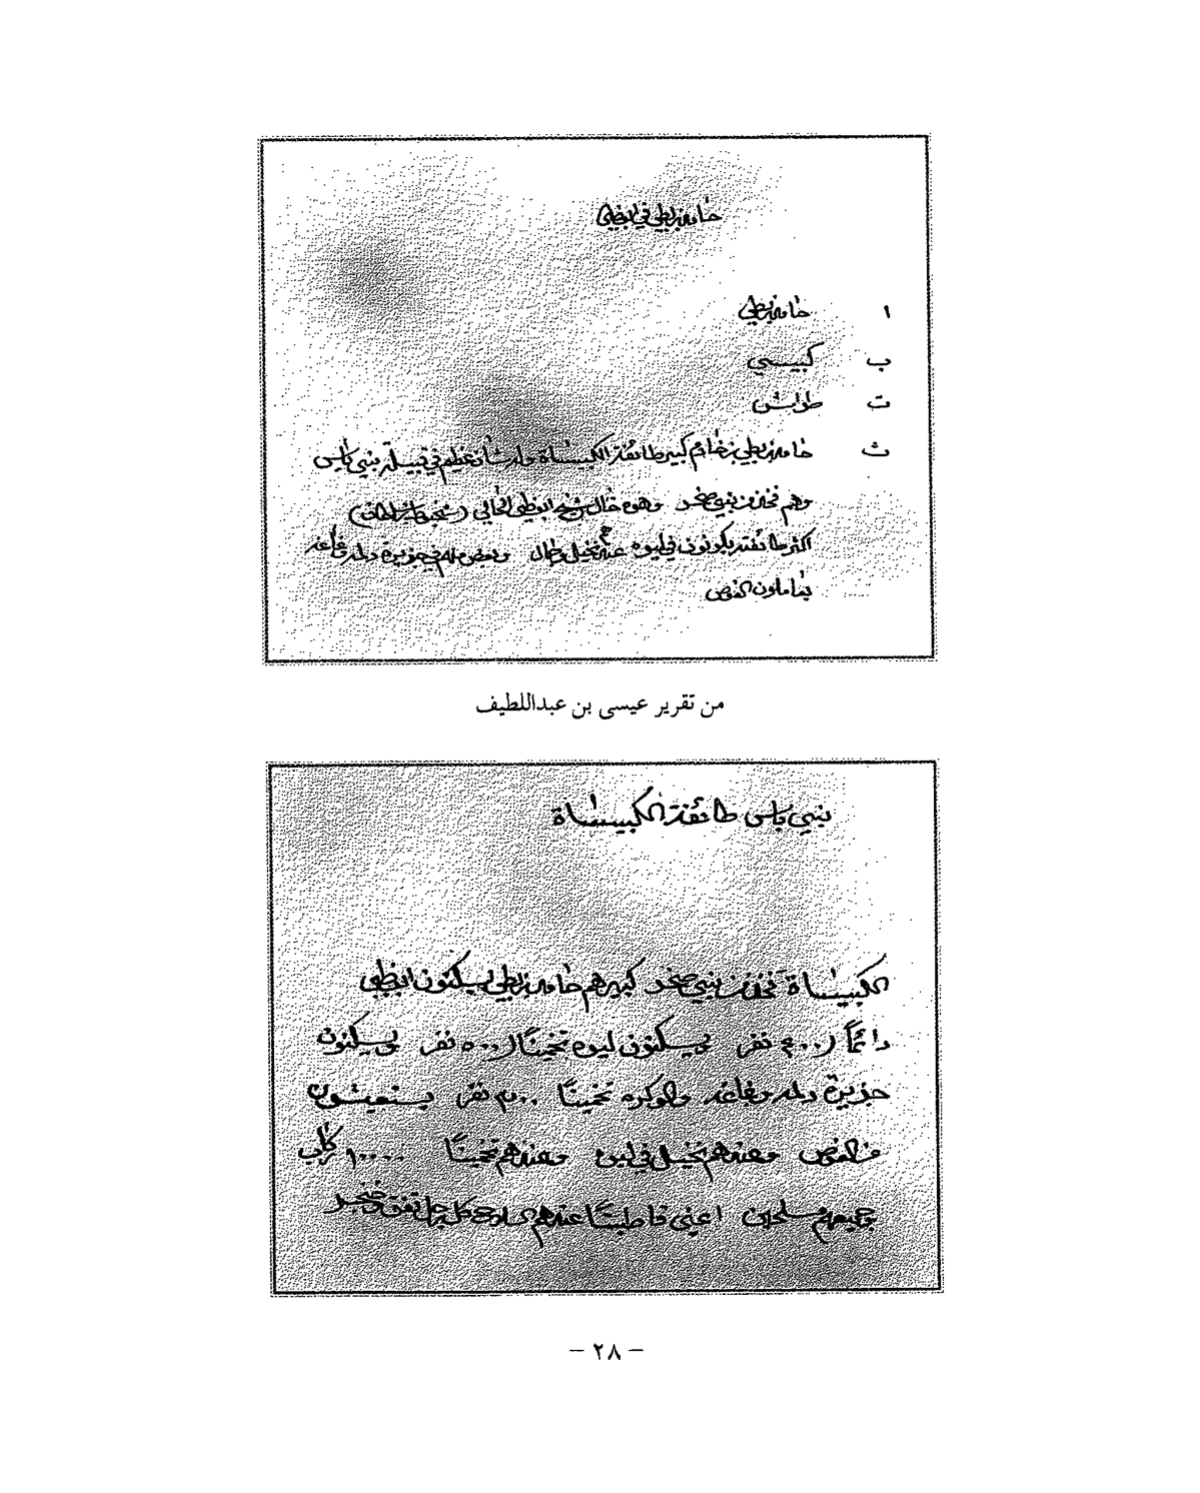 خامد بن بطي في ابوظبي
١ خامد بن بطي
ب كبيسي
ت طواش
ث خامد بن بطي بن خادم كبير طائفة الكبيساة وله شأن عظيم في قبيلة بني ياس
وهم فخذ من بني صخر وهو خال شيخ ابوظبي الحالي
اكثر طائفته يكونون في ليوه عندهم نخيل وحلال وبعض منهم في جزيرة دلمه
يتعاملون الغوص
من تقرير عيسى بن عبداللطيف
بني ياس طائفة الكبيساة
الكبيساة فخذ من بني صخر كبيرهم خامد بن بطي يسكنون ابوظبي
دائماً ر ٤٠٠ نفر يسكنون ليوه تخميناً ر ٥٠٠ نفر يسكنون
جزيرة دلمه وبغاغه والوكره تخميناً ٢٠٠ نفر يستعيشون
من الغوص وعندهم نخيل في ليوه وعندهم تخميناً ١٠٠٠٠ ركاب
جميعهم مسلحين اعني قاطبتاً عندهم سلاح كل رجل تفق وخنجر
– ٢٨ –